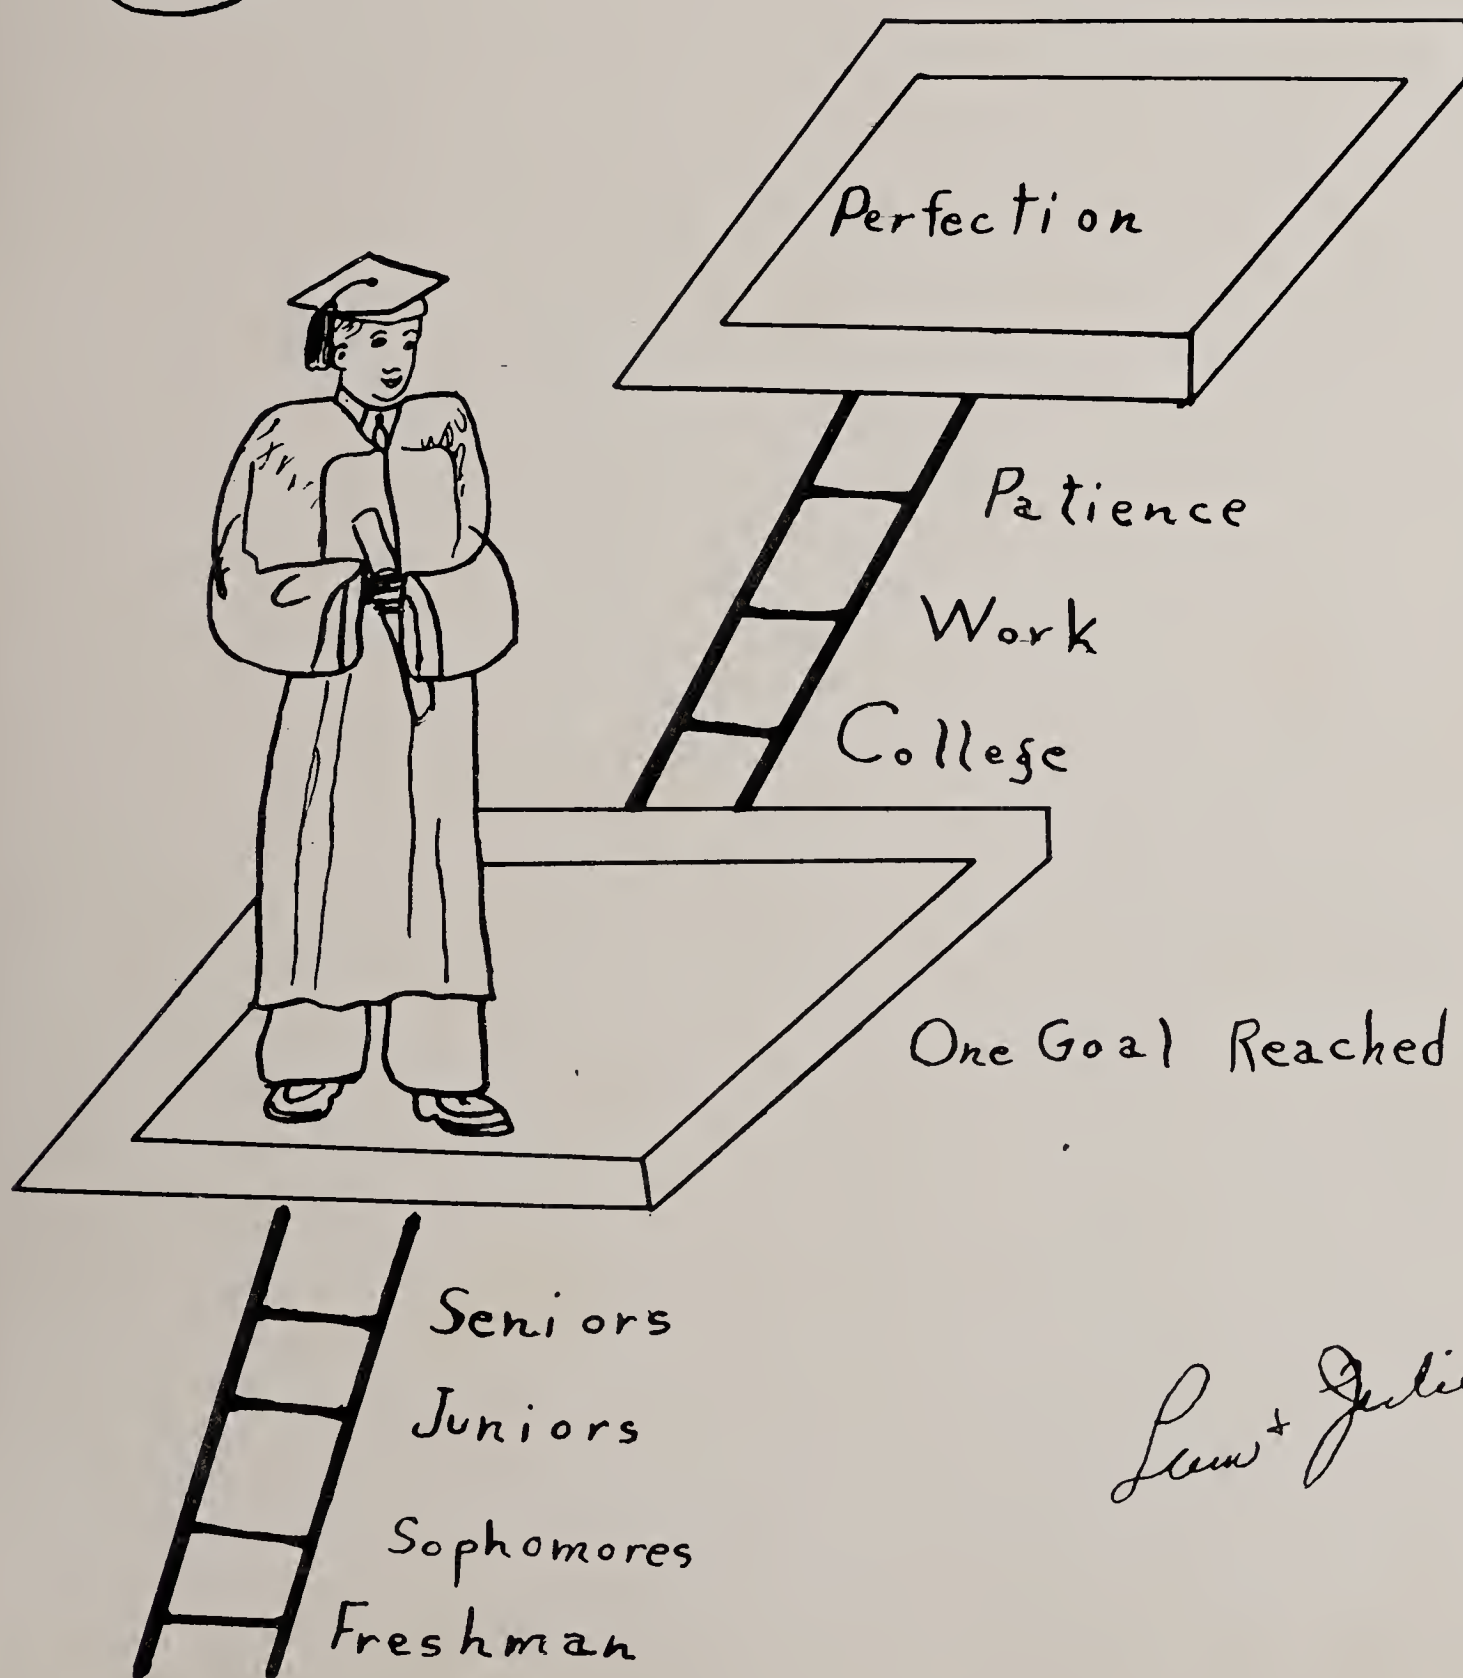 Perfection
Patience
Work
College
One Goal Reached
Seniors
Juniors
Sophomores
Freshman